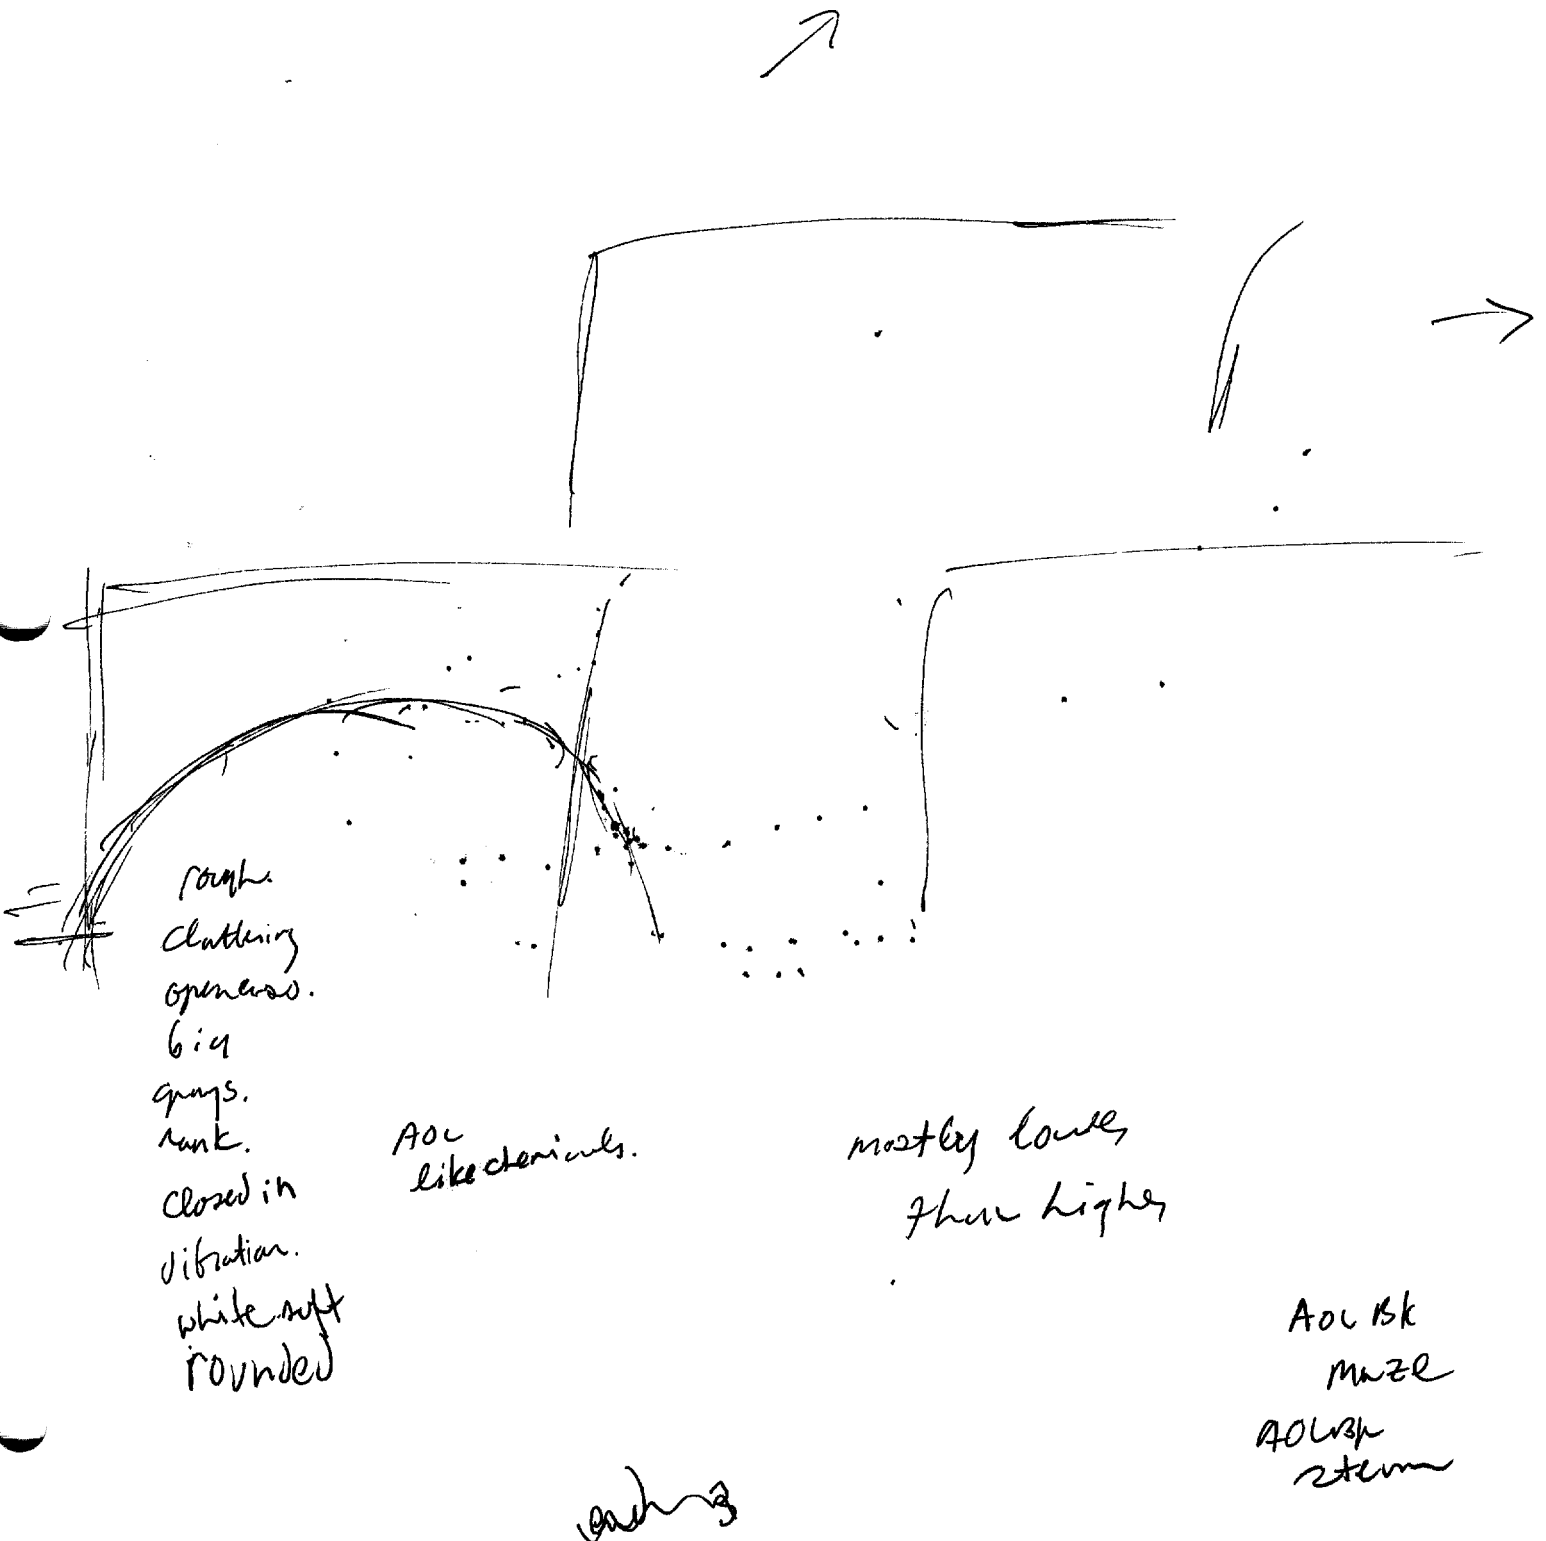 rough.
clattering
big
grays.
rank.
closed in
vibration.
white soft
rounded
AOL
like chemicals.
mostly lower
than higher
AOL Bk
maze
AOL Bk